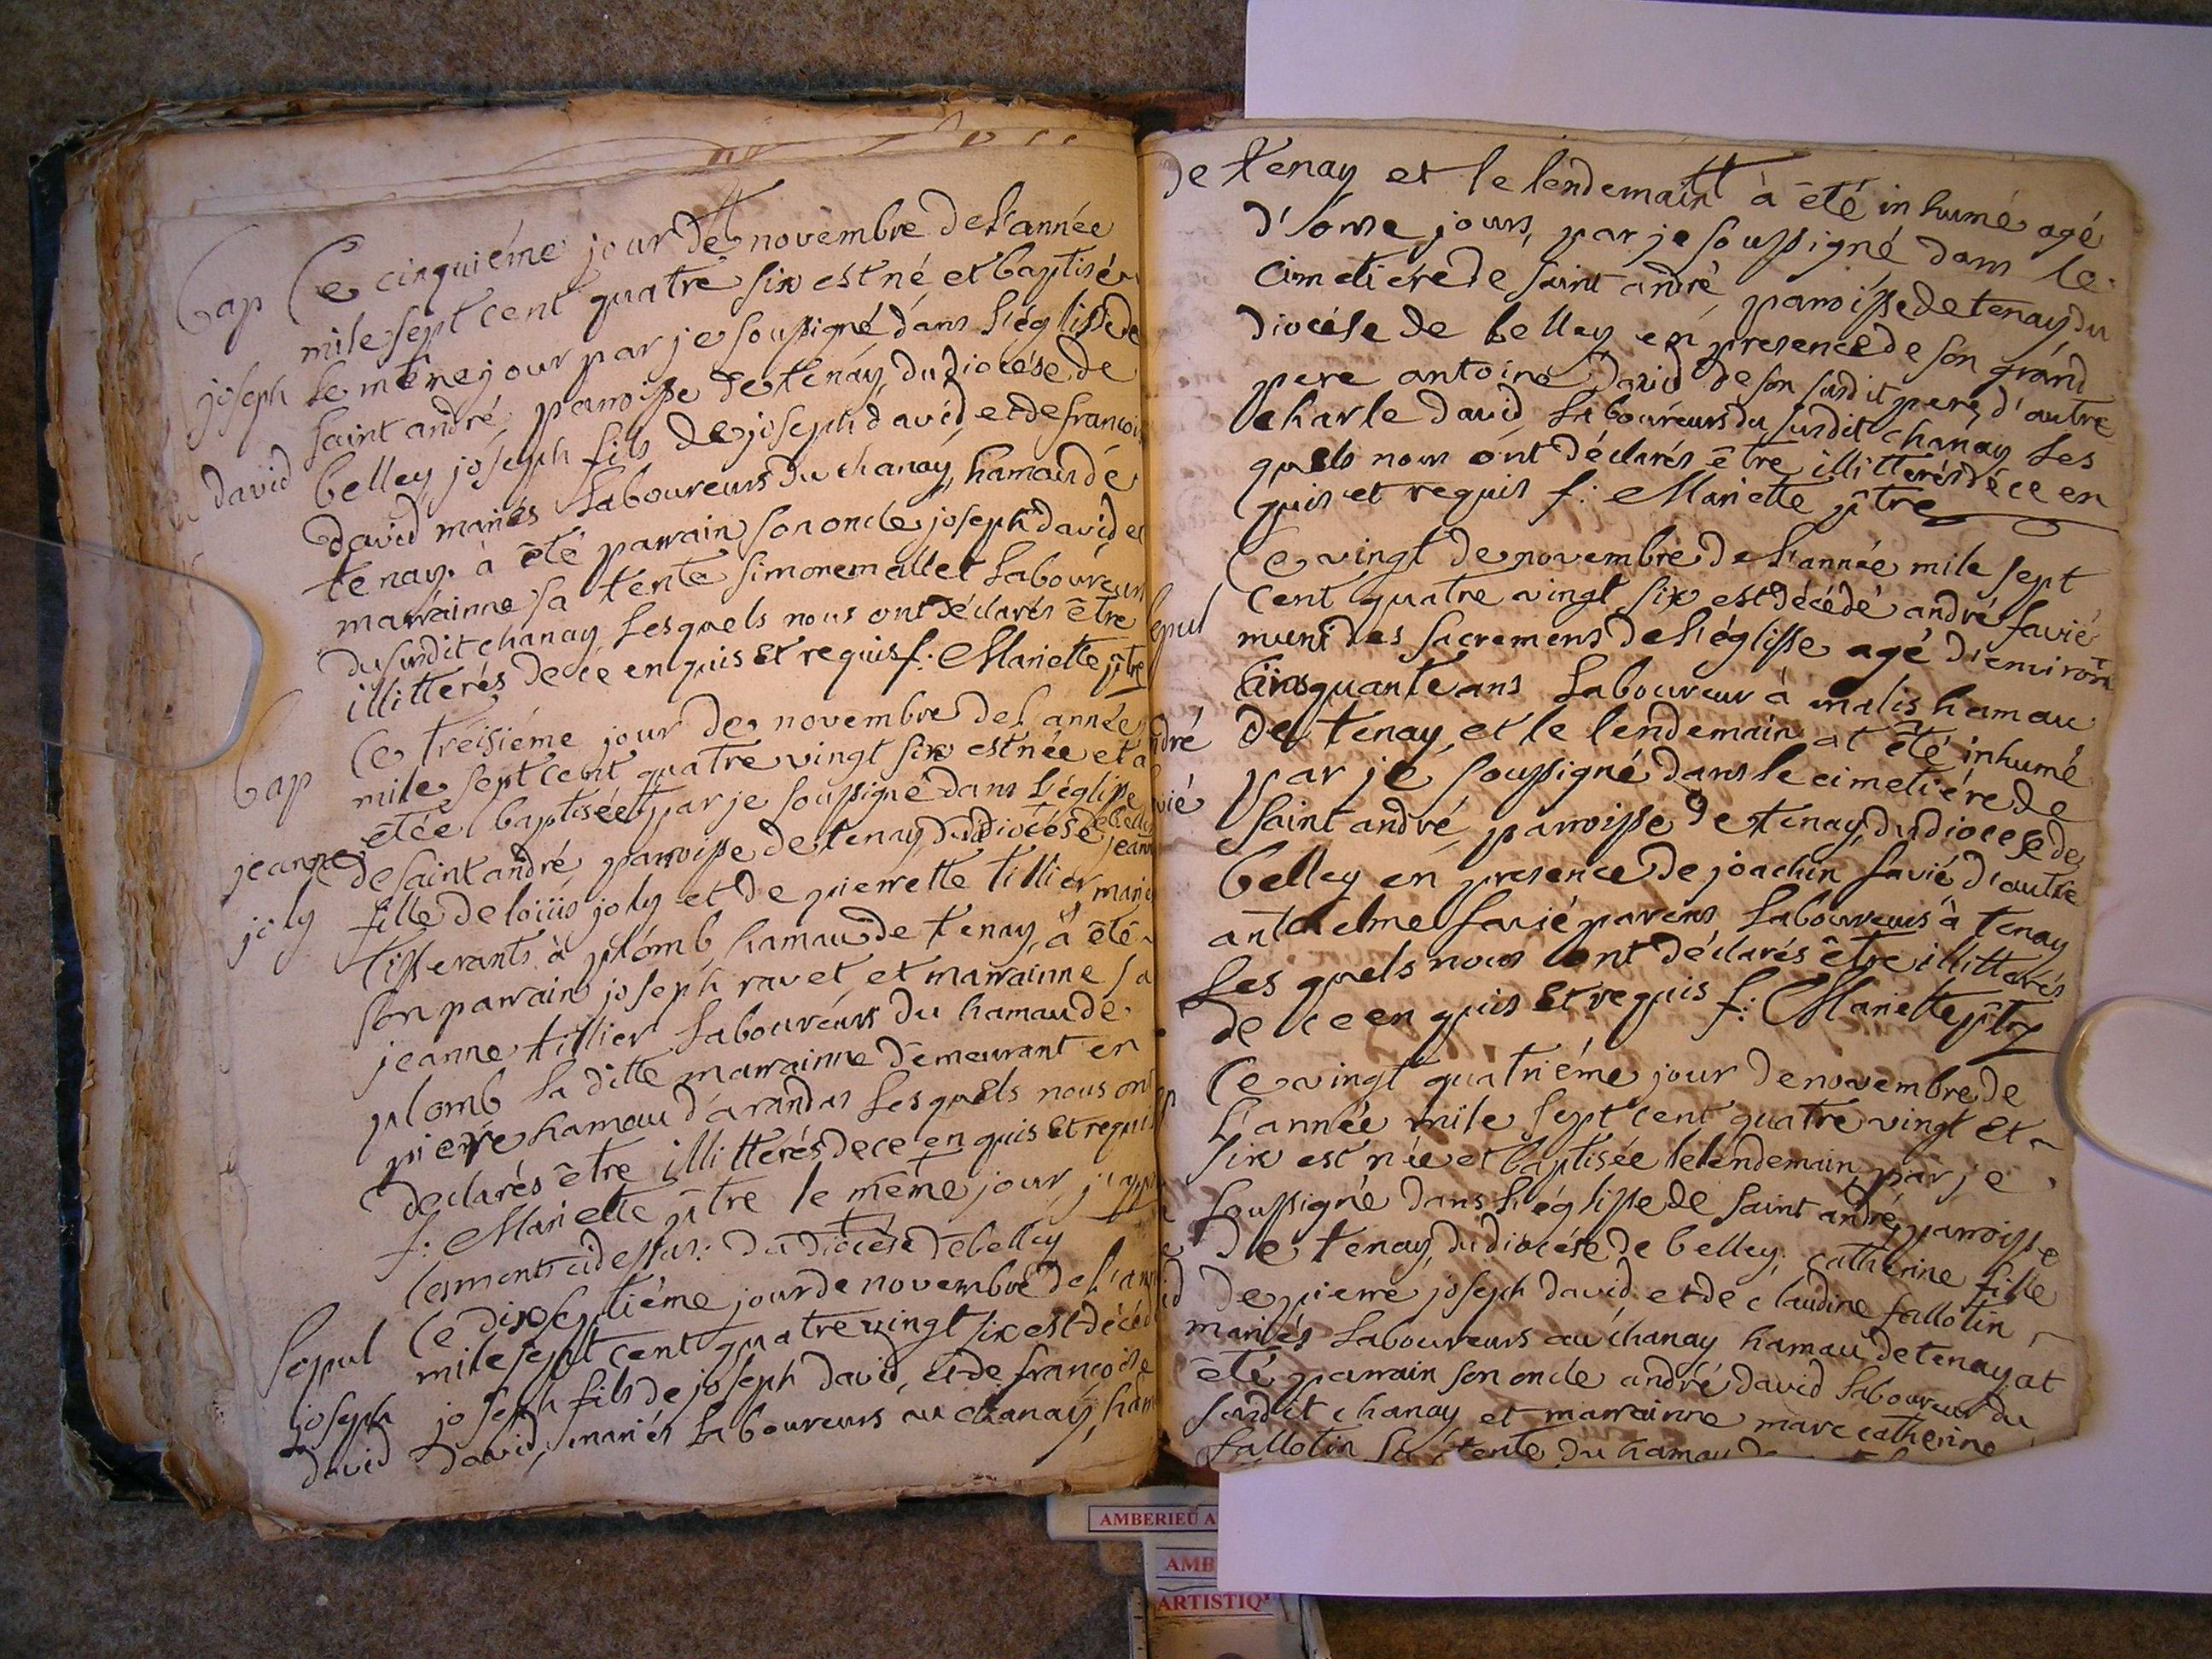 bap Ce cinquiéme jour de novembre de l'année
mile sept cent quatre six est né et baptisé
joseph le même jour par je soussigné dans l'église de
saint andré, parroisse de tenay, du diocése de
david belley, joseph fils de joseph david, et de françoi
david mariés laboureurs du chanay, hamau de
tenay. à êté parrain son oncle joseph david et
marrainne sa tente simone mallet laboureurs
du susdit chanay lesquels nous ont déclarés être
illitterés de ce enquis et requis f: Mariette ptre
bap Ce tréisiéme jour de novembre de l'année
mile sept cent quatre vingt six est née et a
êtée baptisée par je soussigné dans l'églisse
jeanne de saint andré parroisse de tenay, du diocése de belley jeann
joly fille de loüis joly et de pierrette tillier marié
tisserants à plomb, hamau de tenay, à êté
son parrain joseph ravet, et marrainne sa
jeanne tillier laboureurs du hamau de
plomb la ditte marrainne demeurant en
pierre hamau d'arandas lesquels nous ont
declarés être illitterés de ce enquis et requis
f: Mariette ptre le même jour
ci dessus: du diocése de belley
sepul Ce dix septiéme jour de novembre de l'ann
mile sept cent quatre vingt six est décéd
joseph joseph fils de joseph david, et de françoise
david david, mariés laboureurs au chanay, ham
de tenay et le lendemain à êté inhumé agé
d'onse jours, par je soussigné dans le
cimetiére de saint andré, parroisse de tenay, du
diocése de belley en presence de son grand
pere antoine david de son susdit pere, d'autre
charle david laboureurs du susdit chanay les
quels nous ont déclarés être illitterés de ce en
quis et requis f: Mariette ptre
Ce vingt de novembre de l'année mile sept
sepul cent quatre vingt six est décédé andré savié
muni des sacremens de l'églisse agé d'environ
cinquante ans laboureur à malis hamau
ndré de tenay, et le lendemain at êté inhumé
vié par je soussigné dans le cimetiére de
saint andré, parroisse de tenay, du diocese de
belley en presence de joachin savié d'autre
anthelme savié parens laboureurs à tenay
lesquels nous ont déclarés être illitterés
de ce enquis et requis f: Mariette ptre
Ce vingt quatriéme jour de novembre de
l'année mile sept cent quatre vingt et
six est née et baptisée le lendemain, par je
soussigné dans l'églisse de saint andré, parroisse
de tenay, du diocése de belley, catherine fille
de pierre joseph david et de claudine fallotin
mariés laboureurs au chanay hamau de tenay, at
êté parrain son oncle andré david laboureur du
susdit chanay et marrainne marc catherine
fallotin sa tente du hamau de
AMBERIEU A
AMB
ARTISTIQ